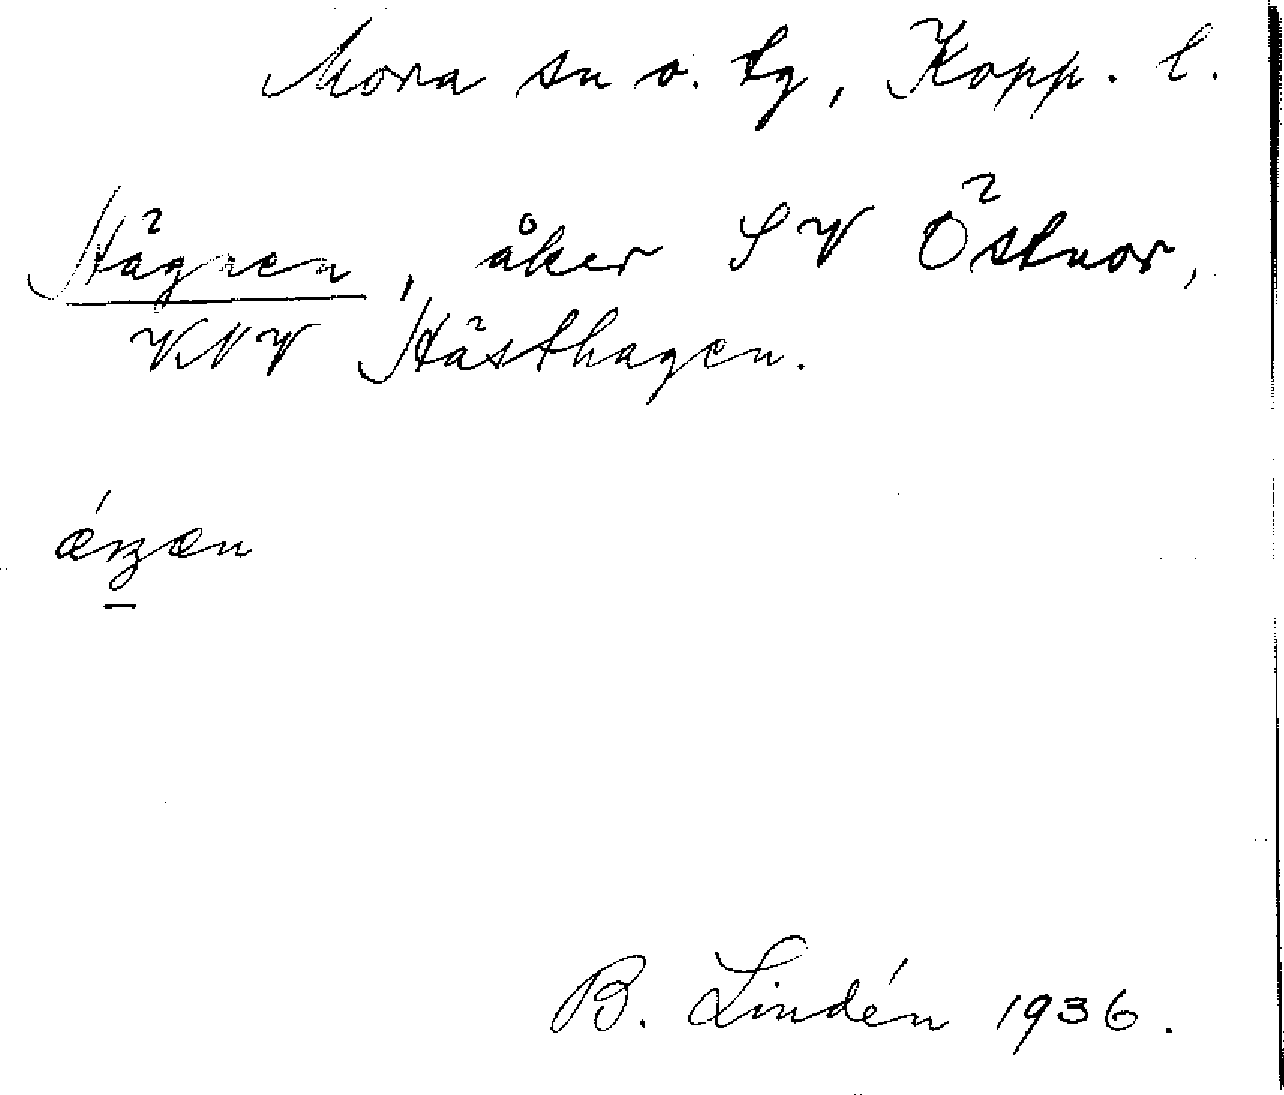 Mora sn o. tg, Kopp. l.
Hägnen, åker SV Östnor,
VNV Hästhagen.
B. Lindén 1936.